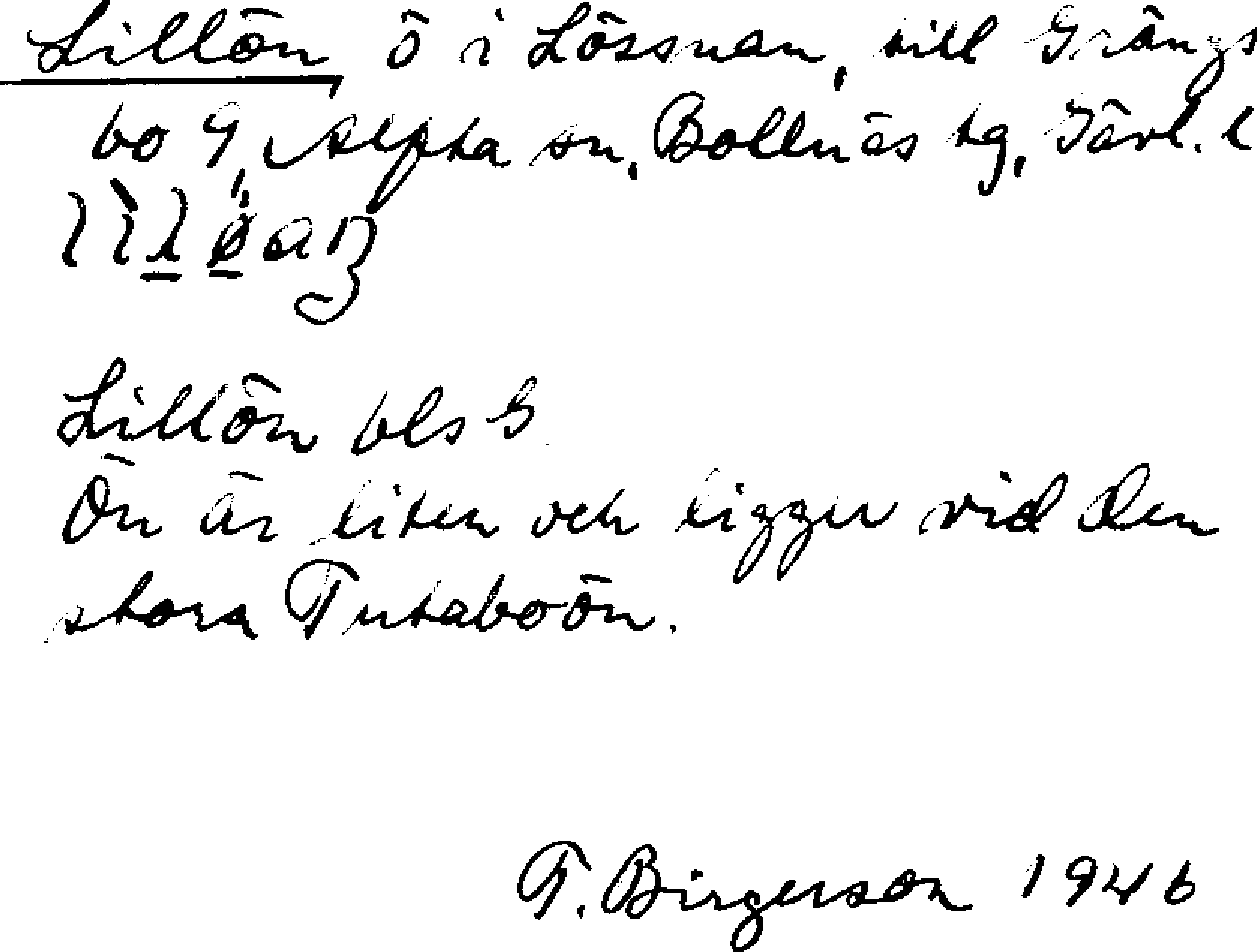 Lillön, ö i Lössnan, till Grängs
bo 9, Alfta sn, Bollnäs tg, Gävl. l
Lillön bls G
Ön är liten och ligger vid den
stora Tutaboön.
T. Birgerson 1946